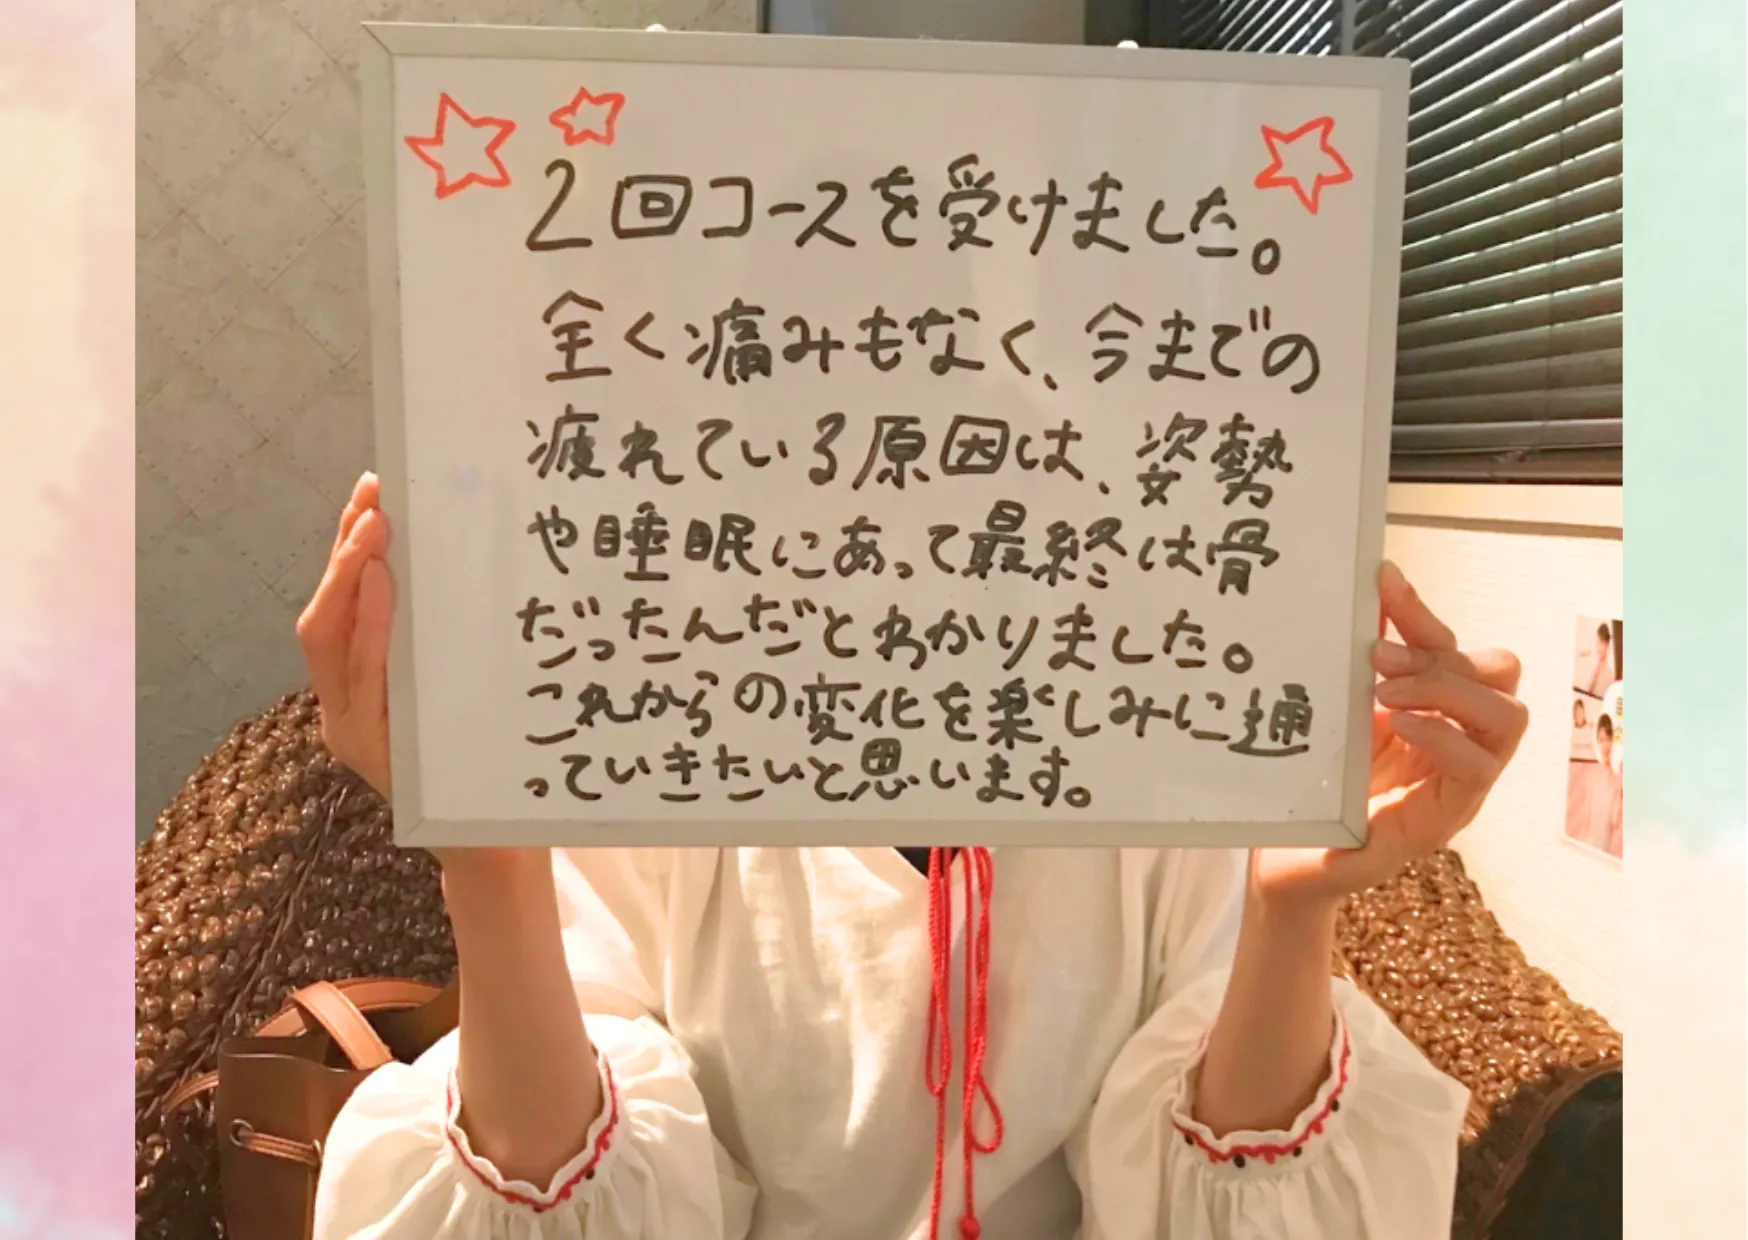 2回コースを受けました。
全く痛みもなく、今までの
疲れている原因は、姿勢
や睡眠にあって最終は骨
だったんだとわかりました。
これからの変化を楽しみに通
っていきたいと思います。